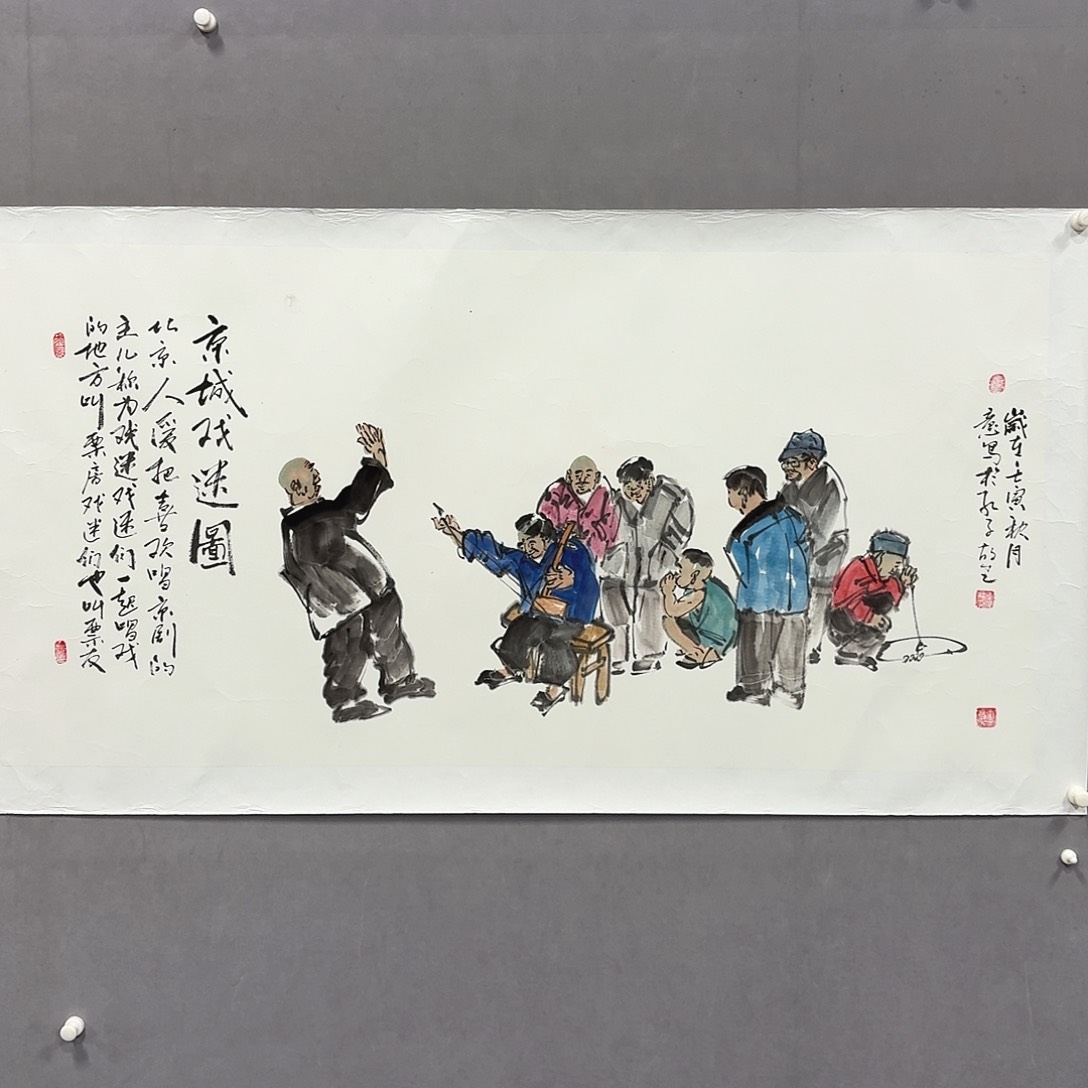 京城戏迷圖
北京人爱把喜欢唱京剧的
主儿称为戏迷戏迷们一起唱戏
的地方叫票房戏迷们也叫票友
歲在壬寅秋月
意写於孔子故里